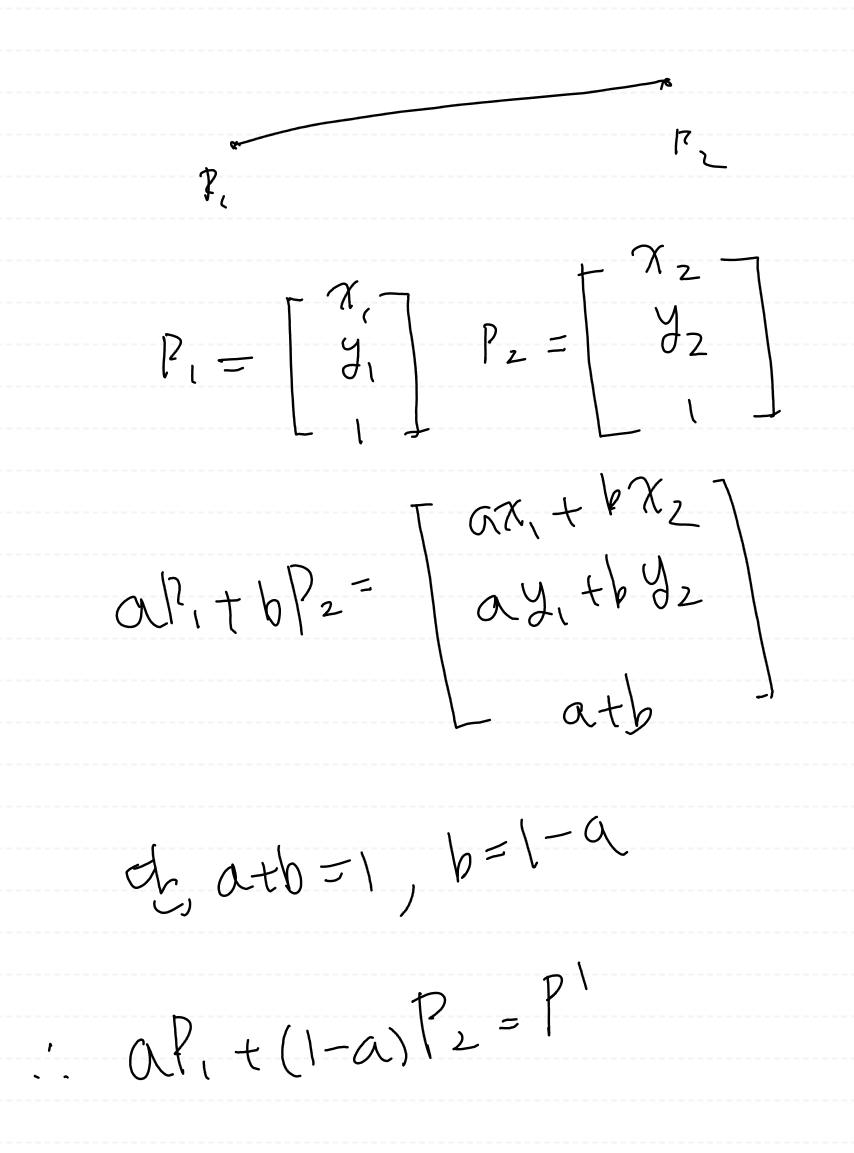 P₁ P₂
P₁ = [x₁ y₁ 1] P₂ = [x₂ y₂ 1]
aP₁ + bP₂ = [ax₁ + bx₂ ay₁ + by₂ a+b]
a+b=1, b=1-a
∴ aP₁ + (1-a)P₂ = P'